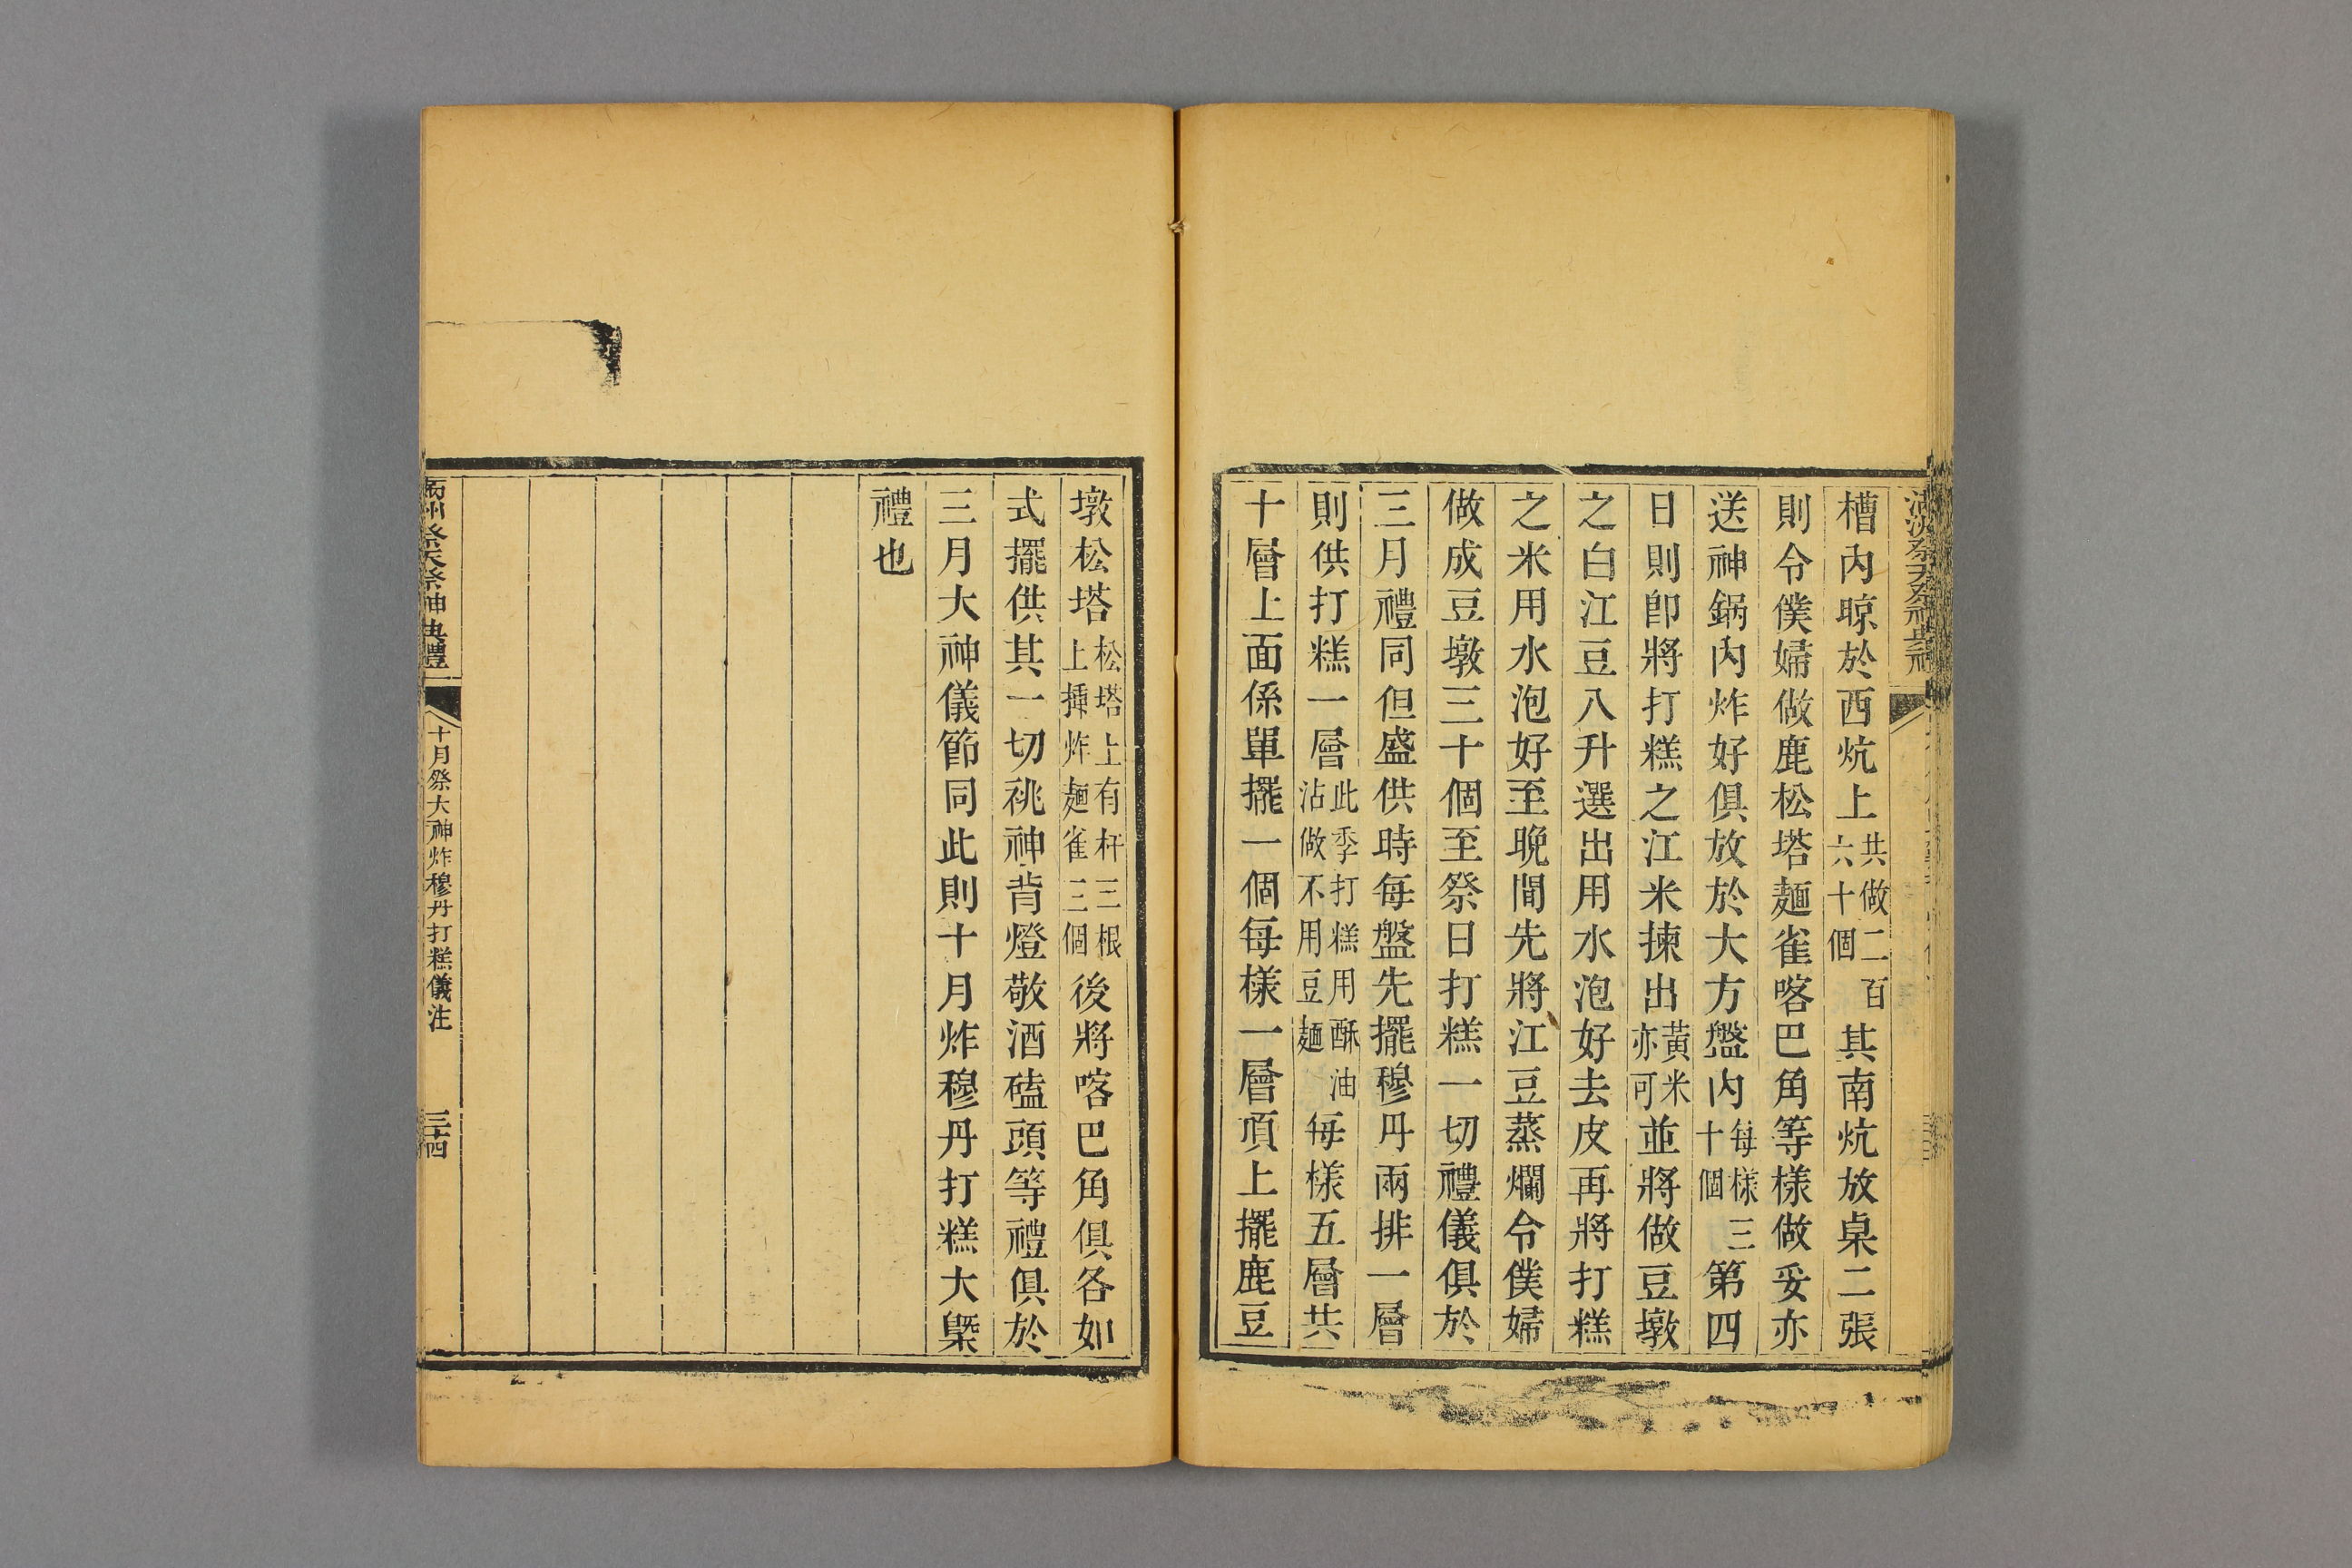 槽內晾於西炕上共做二百六十個其南炕放桌二張
則令僕婦做鹿松塔麵雀喀巴角等樣做妥亦
送神鍋內炸好俱放於大方盤內每樣三十個第四
日則卽將打糕之江米揀出黃米亦可並將做豆墩
之白江豆八升選出用水泡好去皮再將打糕
之米用水泡好至晚間先將江豆蒸爛令僕婦
做成豆墩三十個至祭日打糕一切禮儀俱於
三月禮同但盛供時每盤先擺穆丹兩排一層
則供打糕一層此季打糕用酥油沾做不用豆麵每樣五層共
十層上面係單擺一個每樣一層頂上擺鹿豆
墩松塔松塔上有杆三根上揷炸麵雀三個後將喀巴角俱各如
式擺供其一切祧神背燈敬酒磕頭等禮俱於
三月大神儀節同此則十月炸穆丹打糕大槩
禮也
滿洲祭天祭神典禮
十月祭大神炸穆丹打糕儀注
三十四